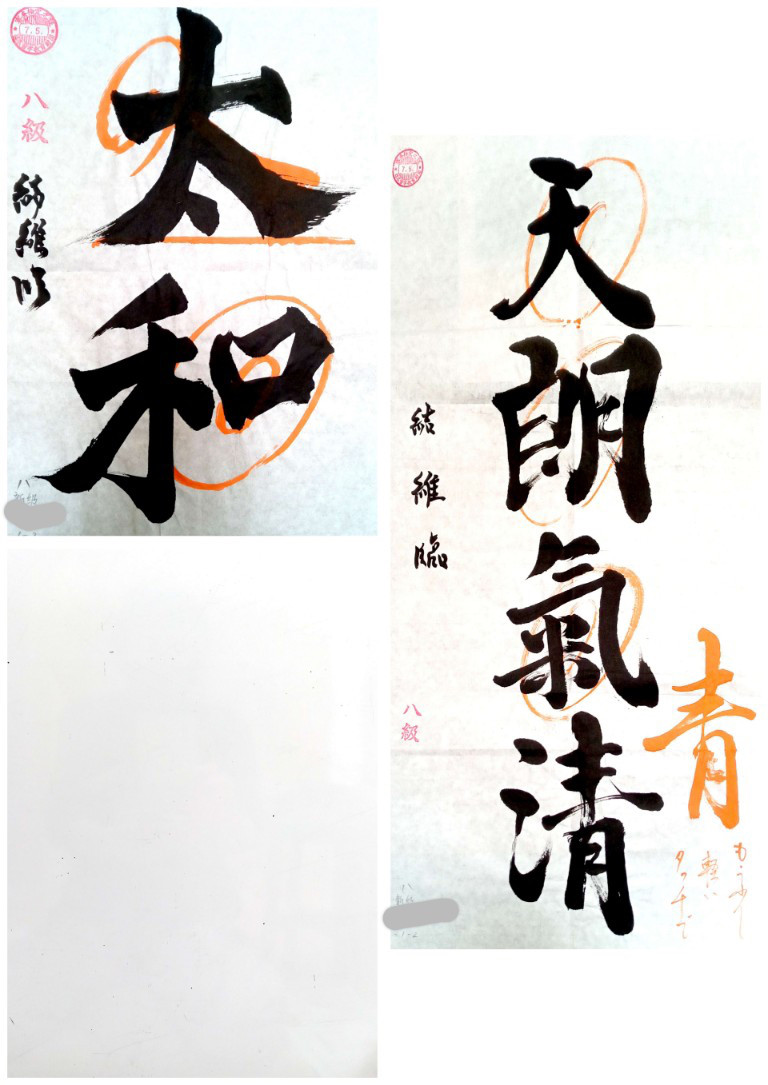 7.5.
太和
八級
結維
八
新級
7.5.
天朗氣清
結維臨
八級
青
もう少し
軽い
タッチで
八